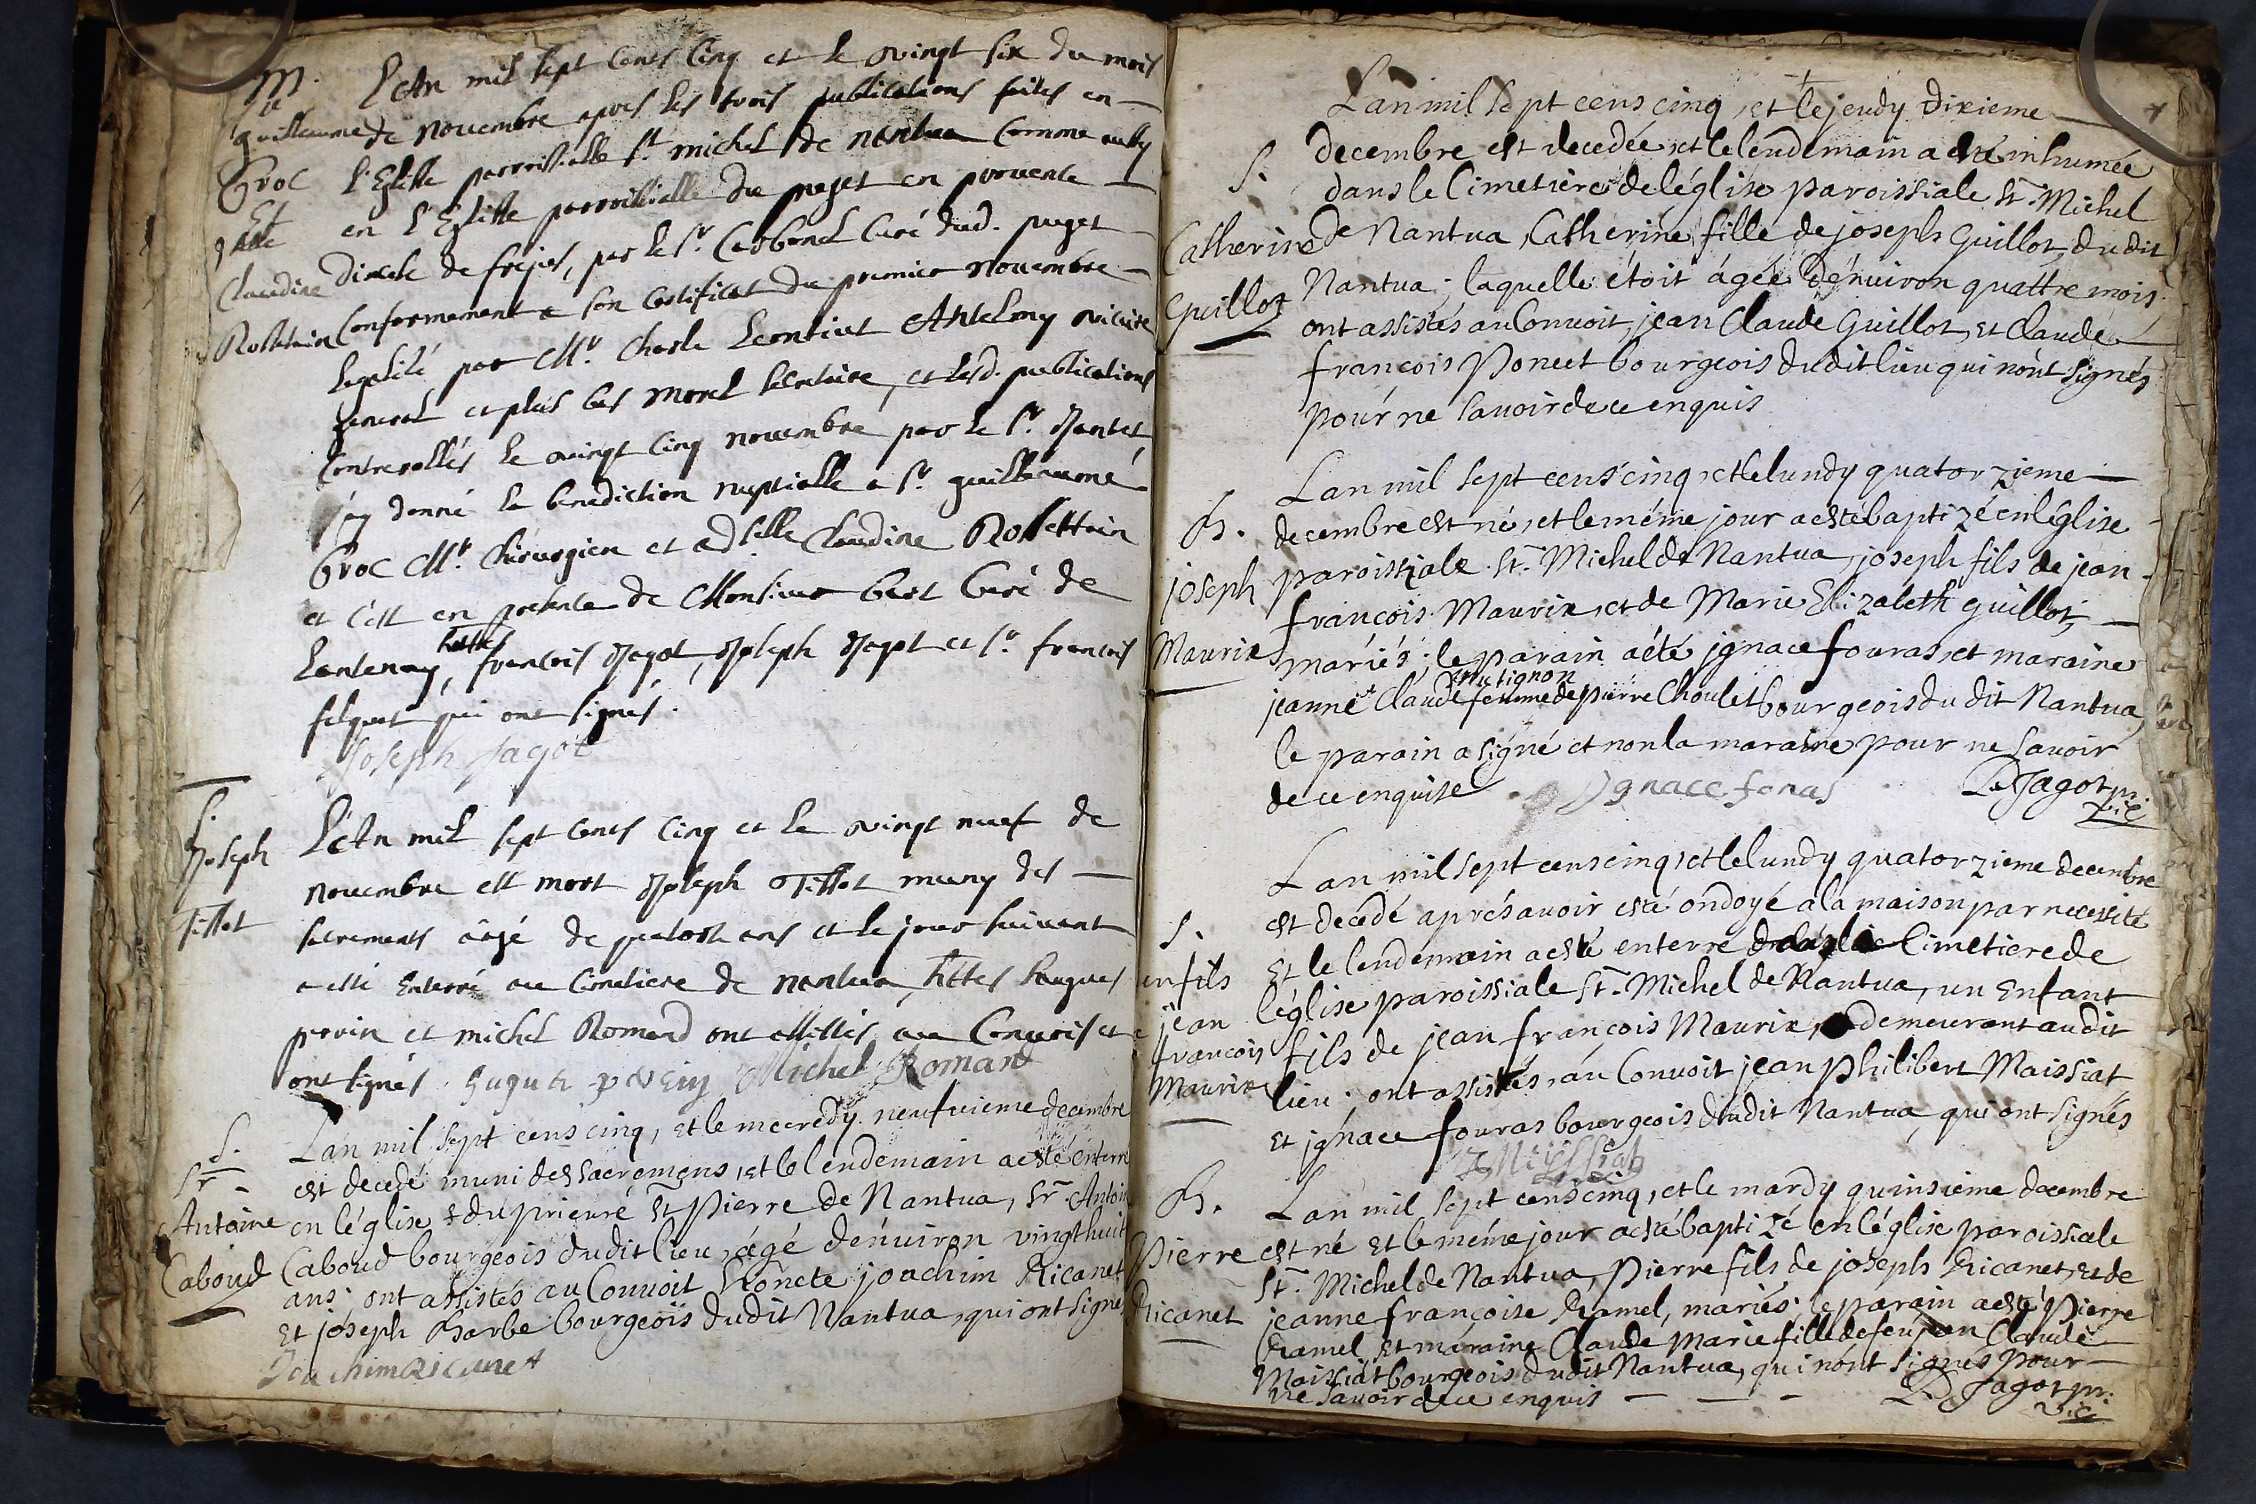 M.
Sr
guillaume
Groc
Et
Claudine
Rossettain
L'An mil sept cents cinq et le vingt six du mois
de novembre apres les trois publications faites en
l'Eglisse parroissialle st michel de nantua comme aussy
en l'Eglisse parroissialle du puget en provence
diocese de frejus, par le sr curé dud. puget
Conformement a son certificat du premier novembre
legalisé par Mr. Charle Leontius Antelmy vicaire
general et plus bas morel secretaire, et lesd. publications
controollés le vingt cinq novembre par le sr
j'ay donné la benediction nuptialle a sr guillaume
Groc Mr. chirurgien et a dslle Claudine Rossettain
et c'est en presence de Monsieur curé de
Lantenay, françois Jagot, Joseph Jagot et sr françois
qui ont signés.
Joseph Jagot
S.
Joseph
Tissot
L'An mil sept cents cinq et le vingt neuf de
novembre est mort Joseph Tissot muny des
sacrements âgé de ans et le jour suivant
a esté Enterré au cimetiere de nantua, hugues
perrin et michel Romand ont assistés au Convois et
ont signés. Michel Romant
S.
Sr.
Antoine
Caboud
Lan mil sept cens cinq, et le mecredy neufvieme decembre
est decedé muni des sacremens, et le lendemain a esté enterré
en léglise du prieuré St Pierre de Nantua, Sr. Antoine
Caboud bourgeois dudit lieu, ágé dénuiron vingt huit
ans; ont assistés au Convoit honete joachim Ricanet
Et joseph Barbe bourgeois dudit Nantua, qui ont signés
Joachim Ricanet
Lan mil sept cens cinq, et le jeudy dixieme
S.
Catherine
Guillot
decembre est decedée, et le lendemain a esté inhumée
dans le Cimetiere de léglise paroissiale St. Michel
de Nantua, Catherine fille de joseph Guillot, du dit
Nantua; laquelle étoit ágée dénuiron quattre mois;
ont assistés au Convoit, jean Claude Guillot, et Claude
françois Poncet bourgeois dudit lieu qui nónt signés
poúr ne savoir de ce enquis
B.
joseph
Maurix
Lan mil sept cens cinq, et le lundy quatorzieme
decembre est né, et le méme jour a esté baptizé en léglise
paroissiale St. Michel de Nantua, joseph fils de jean
françois Maurix, et de Marie Elizabeth guillot,
mariés; le parain a été jgnace fouras, et maraine
jeanne Claude femme de pierre Choulet bourgeois du dit Nantua,
le parain a signé et non la maraine pour ne savoir
de ce enquise
Jgnace fouras
Jagot
vic
S.
un fils
jean
francois
Maurix
Lan mil sept cens cinq, et le lundy quatorzieme decembre
est decedé aprés avoir esté ondoyé a la maison par necessité
Et le lendemain a esté enterré Cimetiere de
léglise paroissiale St. Michel de Nantua, un Enfant
fils de jean françois Maurix, demeurant audit
lieu; ont assistés, au Convoit jean Philibert Maissiat
Et jgnace fouras bourgeois dudit Nantua, qui ont signés
B.
Pierre
Ricanet
Lan mil sept cens cinq, et le mardy quinsieme decembre
est né et le méme jour a esté baptizé en léglise paroissiale
St. Michel de Nantua, Pierre fils de joseph Ricanet, Et de
jeanne françoise Hamel, mariés; le parain a esté Pierre
Hamel, et maraine Claude Marie fille de feu jean Claude
Maissiat bourgeois dudit Nantua, qui nónt signés pour
ne savoir de ce enquis
Jagot
vic